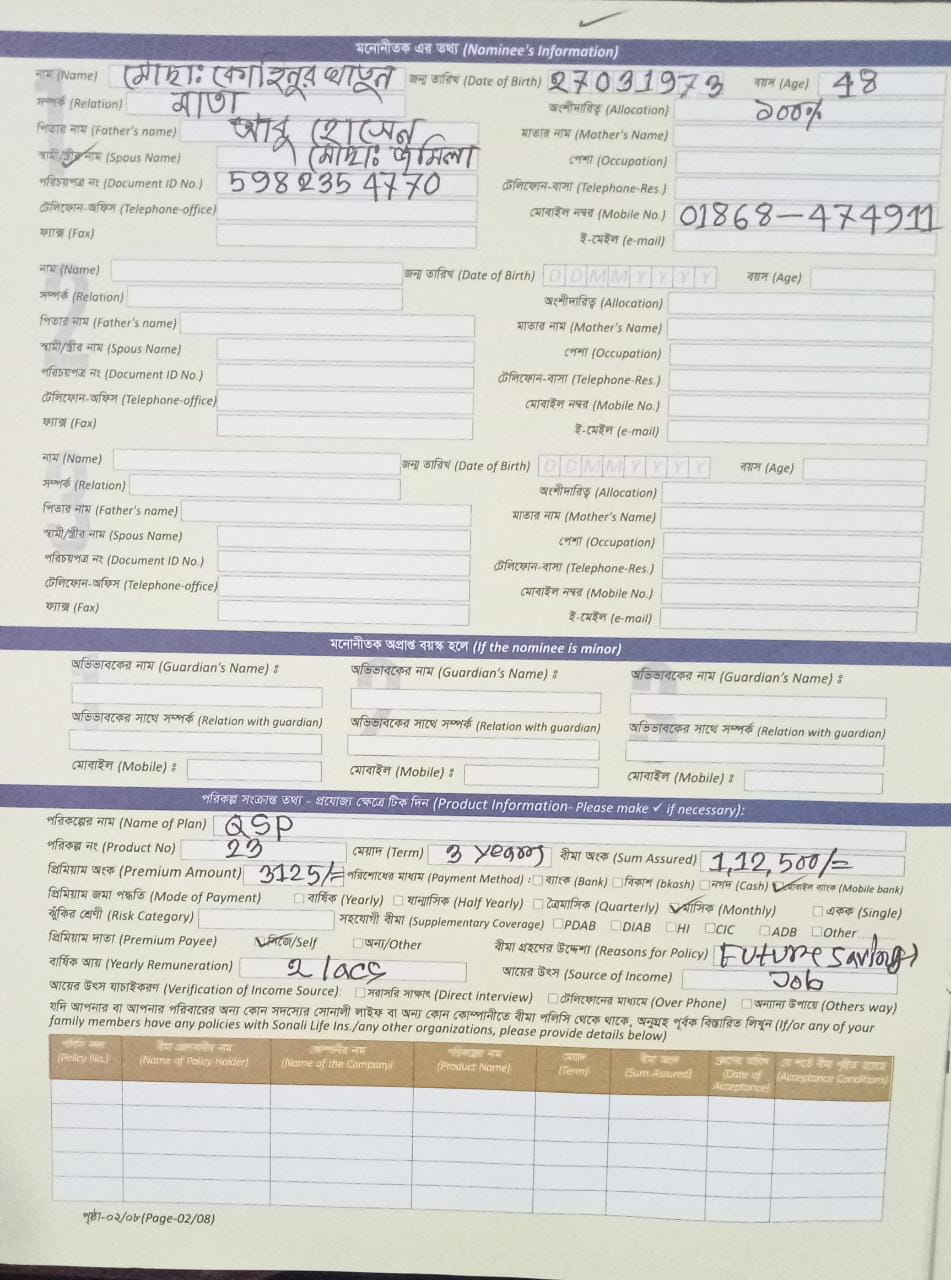 মনোনীতক এর তথ্য (Nominee's Information)
নাম (Name) মোছাঃ কোহিনুর খাতুন জন্ম তারিখ (Date of Birth) 27031973 বয়স (Age) 48
সম্পর্ক (Relation) মাতা অংশীদারিত্ব (Allocation) ১০০%
পিতার নাম (Father's name) আবু হোসেন মাতার নাম (Mother's Name)
স্বামী/স্ত্রীর নাম (Spous Name) মোছাঃ জমিলা পেশা (Occupation)
পরিচয়পত্র নং (Document ID No.) 5982354770 টেলিফোন-বাসা (Telephone-Res.)
টেলিফোন-অফিস (Telephone-office) মোবাইল নম্বর (Mobile No.) 01868-474911
ফ্যাক্স (Fax) ই-মেইল (e-mail)
নাম (Name) জন্ম তারিখ (Date of Birth) D D M M Y Y Y Y বয়স (Age)
সম্পর্ক (Relation) অংশীদারিত্ব (Allocation)
পিতার নাম (Father's name) মাতার নাম (Mother's Name)
স্বামী/স্ত্রীর নাম (Spous Name) পেশা (Occupation)
পরিচয়পত্র নং (Document ID No.) টেলিফোন-বাসা (Telephone-Res.)
টেলিফোন-অফিস (Telephone-office) মোবাইল নম্বর (Mobile No.)
ফ্যাক্স (Fax) ই-মেইল (e-mail)
নাম (Name) জন্ম তারিখ (Date of Birth) D D M M Y Y Y Y বয়স (Age)
সম্পর্ক (Relation) অংশীদারিত্ব (Allocation)
পিতার নাম (Father's name) মাতার নাম (Mother's Name)
স্বামী/স্ত্রীর নাম (Spous Name) পেশা (Occupation)
পরিচয়পত্র নং (Document ID No.) টেলিফোন-বাসা (Telephone-Res.)
টেলিফোন-অফিস (Telephone-office) মোবাইল নম্বর (Mobile No.)
ফ্যাক্স (Fax) ই-মেইল (e-mail)
মনোনীতক অপ্রাপ্ত বয়স্ক হলে (If the nominee is minor)
অভিভাবকের নাম (Guardian's Name) : অভিভাবকের নাম (Guardian's Name) : অভিভাবকের নাম (Guardian's Name) :
অভিভাবকের সাথে সম্পর্ক (Relation with guardian) অভিভাবকের সাথে সম্পর্ক (Relation with guardian) অভিভাবকের সাথে সম্পর্ক (Relation with guardian)
মোবাইল (Mobile) : মোবাইল (Mobile) : মোবাইল (Mobile) :
পরিকল্প সংক্রান্ত তথ্য - প্রযোজ্য ক্ষেত্রে টিক দিন (Product Information- Please make ✓ if necessary):
পরিকল্পের নাম (Name of Plan) QSP
পরিকল্প নং (Product No) 23 মেয়াদ (Term) 3 years বীমা অংক (Sum Assured) 1,12,500/=
প্রিমিয়াম অংক (Premium Amount) 3125/= পরিশোধের মাধ্যম (Payment Method) : ব্যাংক (Bank) বিকাশ (bkash) নগদ (Cash) মোবাইল ব্যাংক (Mobile bank)
প্রিমিয়াম জমা পদ্ধতি (Mode of Payment) বার্ষিক (Yearly) ষান্মাসিক (Half Yearly) ত্রৈমাসিক (Quarterly) মাসিক (Monthly) একক (Single)
ঝুঁকির শ্রেণী (Risk Category) সহযোগী বীমা (Supplementary Coverage) PDAB DIAB HI CIC ADB Other
প্রিমিয়াম দাতা (Premium Payee) নিজে/Self অন্য/Other বীমা গ্রহণের উদ্দেশ্য (Reasons for Policy) Future savings
বার্ষিক আয় (Yearly Remuneration) 2 lacs আয়ের উৎস (Source of Income) Job
আয়ের উৎস যাচাইকরণ (Verification of Income Source): সরাসরি সাক্ষাৎ (Direct Interview) টেলিফোনের মাধ্যমে (Over Phone) অন্যান্য উপায়ে (Others way)
যদি আপনার বা আপনার পরিবারের অন্য কোন সদস্যের সোনালী লাইফ বা অন্য কোন কোম্পানীতে বীমা পলিসি থেকে থাকে, অনুগ্রহ পূর্বক বিস্তারিত লিখুন (If/or any of your
family members have any policies with Sonali Life Ins./any other organizations, please provide details below)
(Policy No.) (Name of Policy Holder) (Name of the Company) (Product Name) (Term) (Sum Assured) (Date of Acceptance) (Acceptance Conditions)
পৃষ্ঠা-০২/০৮(Page-02/08)